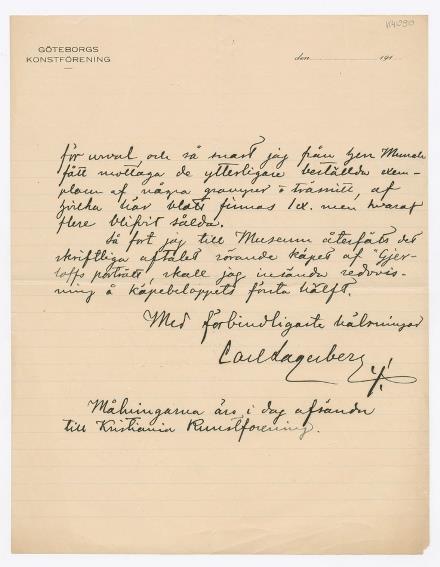 K4090
GÖTEBORGS
KONSTFÖRENING
den 191
för urval, och så snart jag från Herr Munch
fått mottaga de ytterligare beställda exem-
plaren af några gravyrer o träsnitt, af
hvilka här blott finnas 1 ex. men hvaraf
flere blifvit sålda.
Så fort jag till Museum återfått det
skriftliga aftalet rörande köpet af "Gjer-
loffs porträtt, skall jag insända redovis-
ning å köpebeloppets första hälft.
Med förbindligaste hälsningar
Carl Lagerberg
Målningarna äro i dag afsända
till Kristiania Kunstforening.